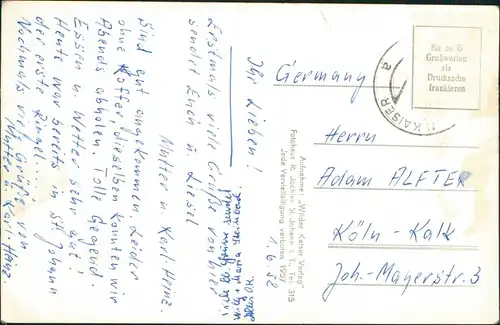 Ihr Lieben!
Erstmals viele Grüße von hier
sendet Euch u. Liesel
Mutter u. Karl-Heinz.
Sind gut angekommen. Leider
ohne Koffer. Dieselben können wir
Abends abholen. Tolle Gegend.
Essen u. Wetter sehr gut!
Heute war bereits in St. Johann
der erste
Nochmals viele Grüße von
Mutter u. Karl-Heinz.
Grüße sendet
Maria
1.6.58
Aufnahme: "Wilder Kaiser Verlag"
Fotohaus R. Jöchler, St. Johann i. T., Tel. 315
Jede Vervielfältigung verboten, 1957
Bis zu 5
Grußworten
als
Drucksache
frankieren
KAISER
a
Germany
Herrn
Adam ALFTER
Köln - Kalk
Joh.-Mayerstr. 3